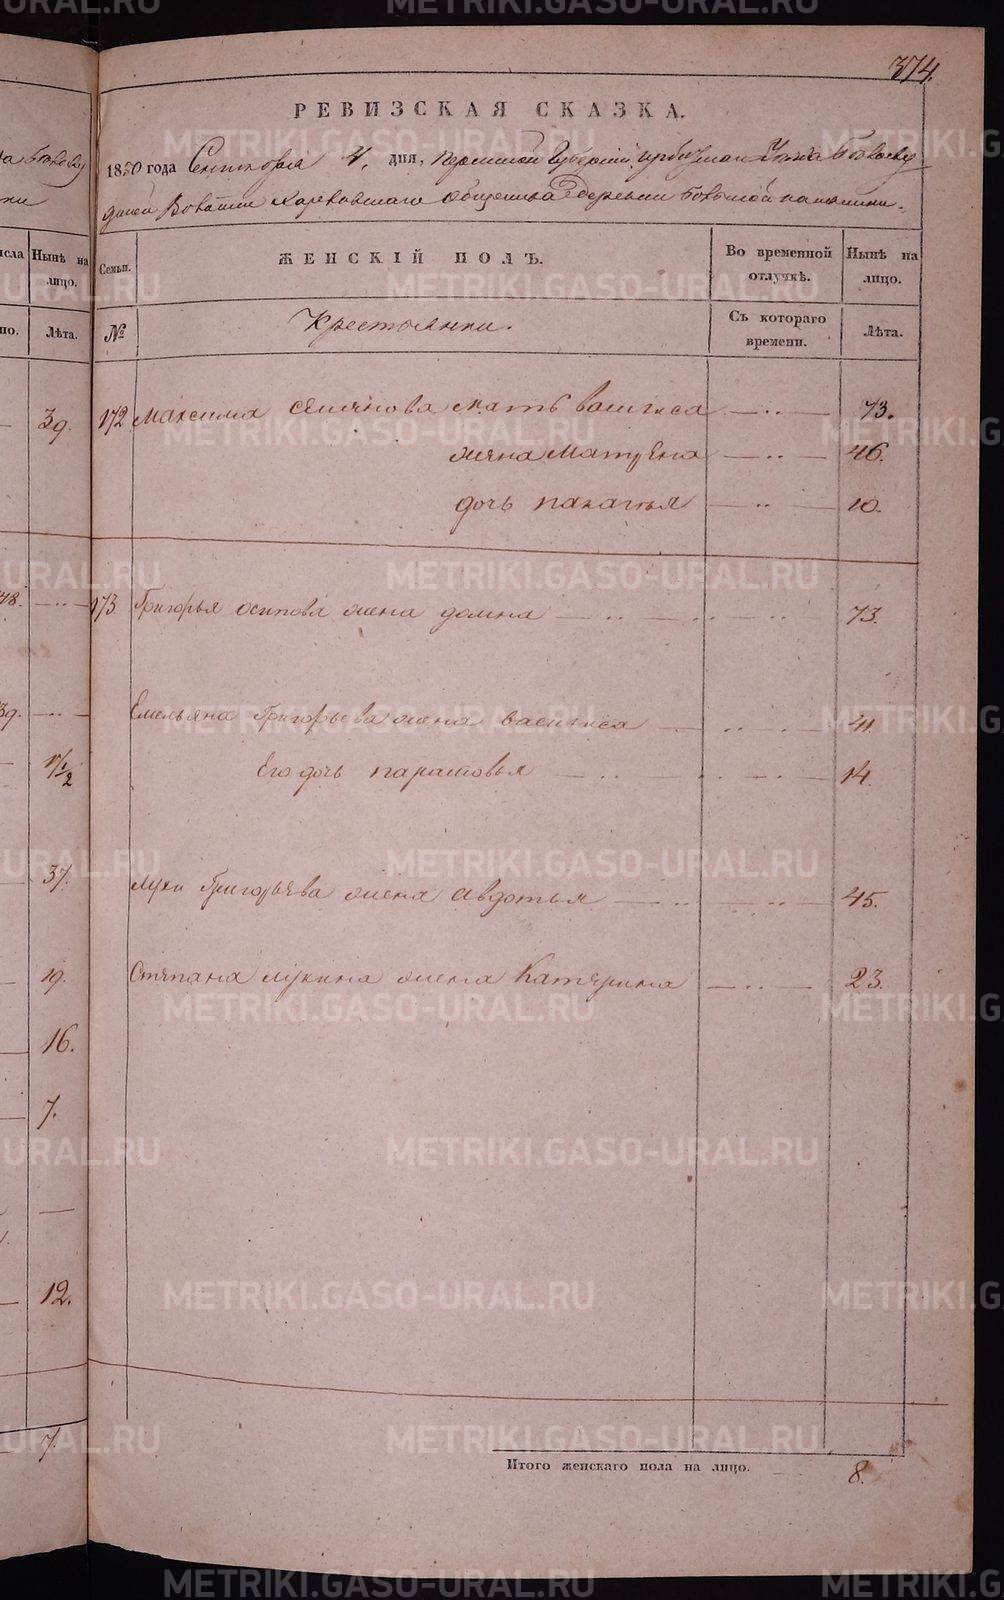 374.
РЕВИЗСКАЯ СКАЗКА.
1850 года Сентября 4. дня, Пермской Губернии, Ирбитскаго Уезда
Волости Харловскаго общества Деревни Большой
Семьи.
ЖЕНСКІЙ ПОЛЪ.
Во временной отлучкѣ.
Нынѣ на лицо.
№
Крестьянки.
Съ котораго времени.
Лѣта.
172 Максима Семенова мать васигиса — .. — 73.
жена Матрена — .. — 46.
дочь палагья — .. — 10.
173 Григорья осипова жена домна — .. — .. — 73.
Емельяна Григорьева жена васигиса — .. — 41.
Его дочь парасковья — .. — 14.
Луки Григорьева жена Авдотья — .. — .. — 45.
Степана лукина жена Катерина — .. — 23.
Итого женскаго пола на лицо. 8.
Нынѣ на лицо.
Лѣта.
39.
48. — .. —
39. — .. —
1/2
37.
19.
16.
7.
12.
7.
METRIKI.GASO-URAL.RU